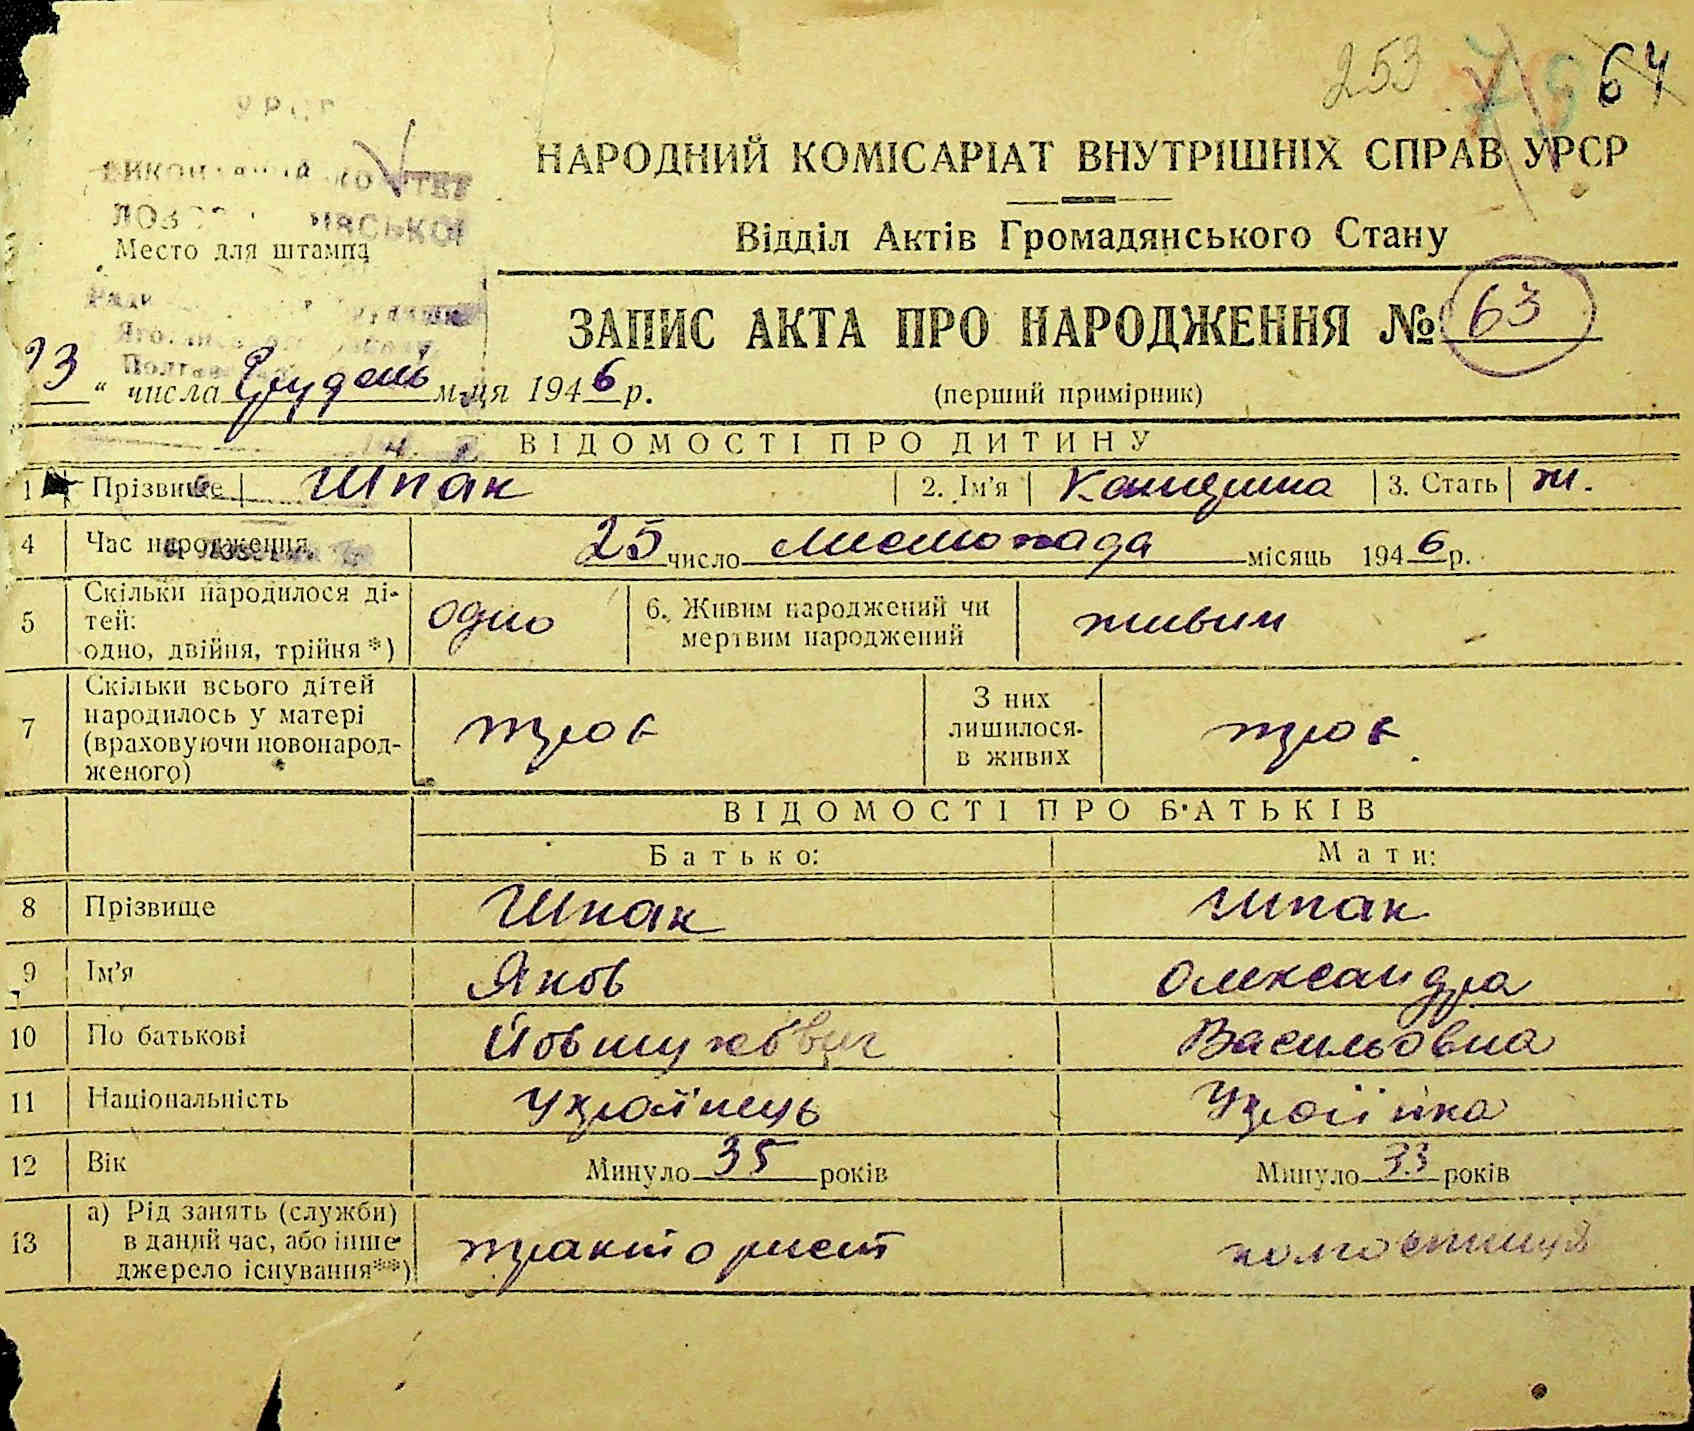 253 64
НАРОДНИЙ КОМІСАРІАТ ВНУТРІШНІХ СПРАВ УРСР
Відділ Актів Громадянського Стану
Место для штампа
ЗАПИС АКТА ПРО НАРОДЖЕННЯ № 63
"числа Грудень м-ця 1946 р.
(перший примірник)
ВІДОМОСТІ ПРО ДИТИНУ
1 Прізвище Шпак 2. Ім'я 3. Стать ж.
4 Час народження 25 число листопада місяць 1946 р.
5 Скільки народилося ді-
тей:
одно, двійня, трійня*) одно 6. Живим народжений чи
мертвим народжений живим
7 Скільки всього дітей
народилось у матері
(враховуючи новонарод-
женого) троє З них
лишилося
в живих троє
ВІДОМОСТІ ПРО БАТЬКІВ
Батько: Мати:
8 Прізвище Шпак Шпак
9 Ім'я Яков Олександра
10 По батькові Васильовна
11 Національність Українець Українка
12 Вік Минуло 35 років Минуло 33 років
13 а) Рід занять (служби)
в даний час, або інше
джерело існування**) тракторист колгоспниця